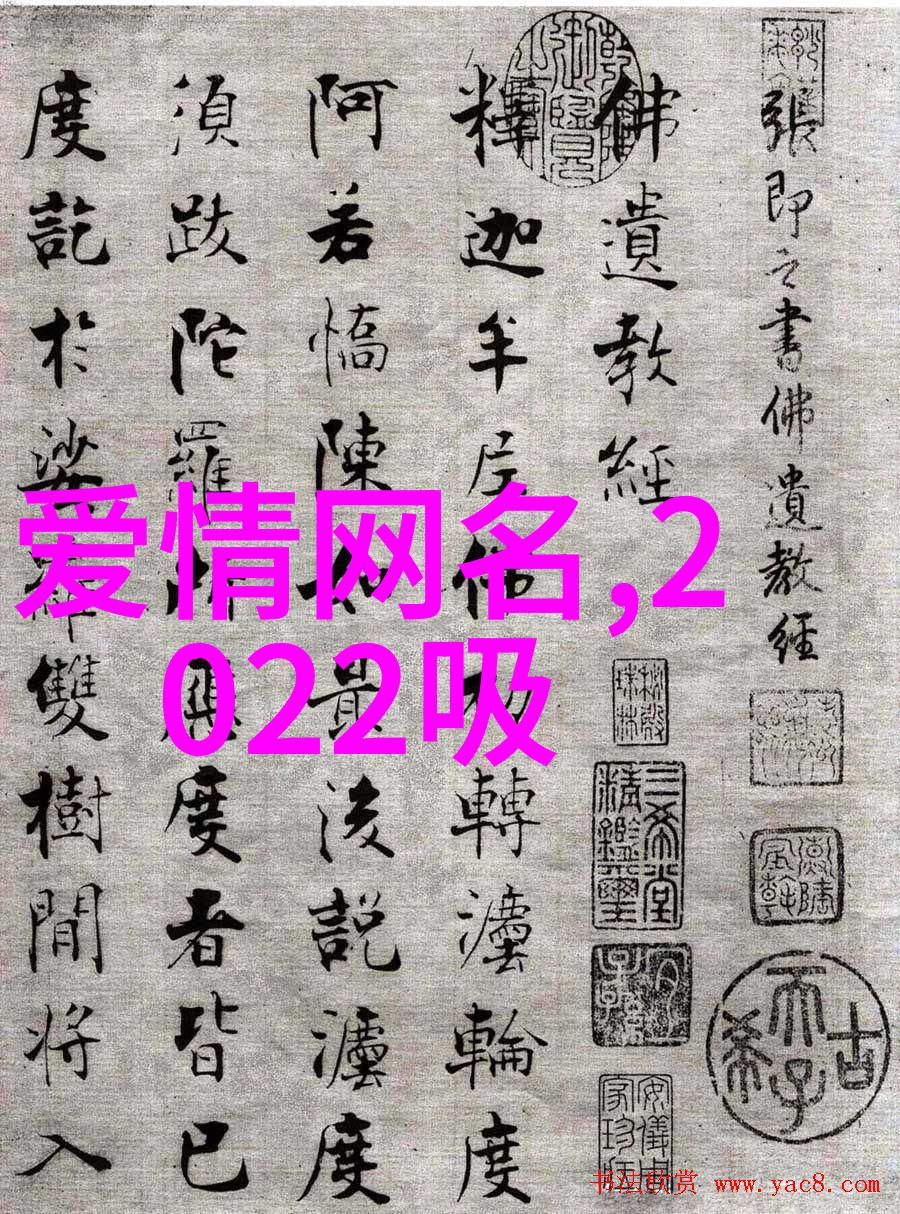 張即之書佛遺教經
佛遺教經
釋迦牟尼佛初轉灋輪度
阿若憍陳如最後說灋度
須跋陀羅所應度者皆已
度訖於娑羅雙樹間將入
爱情网名,2
022吸
三希堂精鑑璽
古希天子
書法欣赏 www.yac8.com